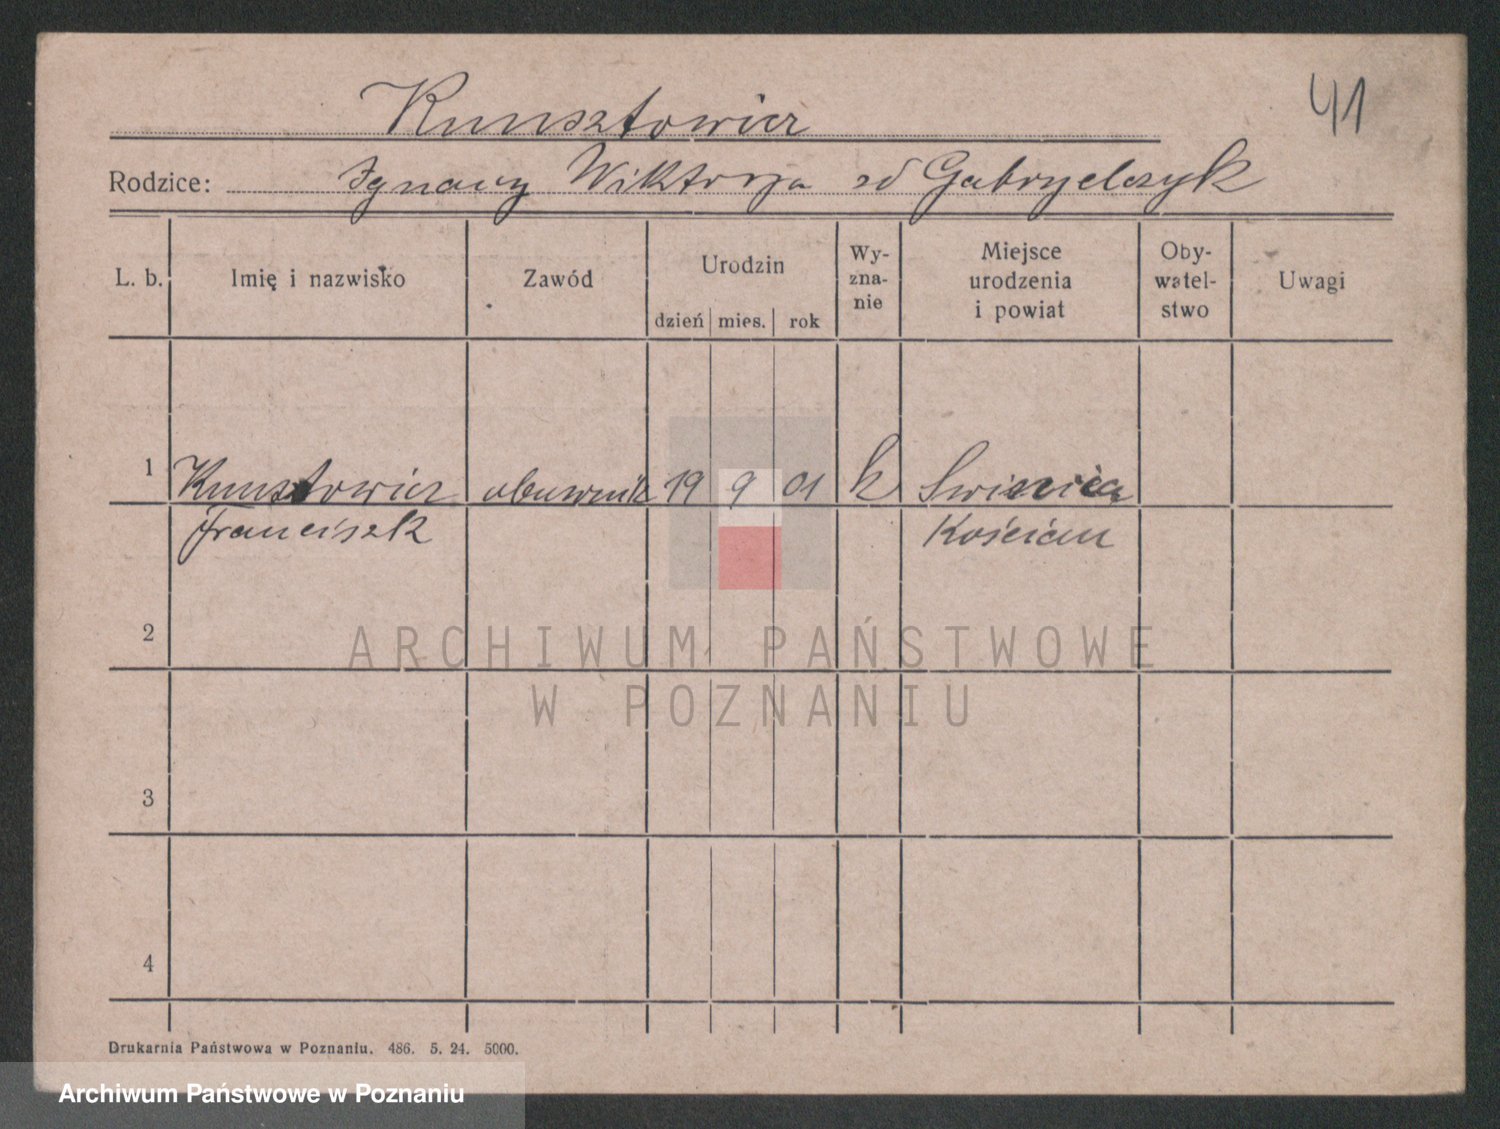 41
Kunsztowicz
Rodzice: Ignacy Wiktorja zd Gabryelczyk
L. b. Imię i nazwisko Zawód Urodzin dzień mies. rok Wy-zna-nie Miejsce urodzenia i powiat Oby-watel-stwo Uwagi
1 Kunsztowicz obuwnik 19 9 01 k
Franciszk Kościan
2
ARCHIWUM PAŃSTWOWE
W POZNANIU
3
4
Drukarnia Państwowa w Poznaniu. 486. 5. 24. 5000.
Archiwum Państwowe w Poznaniu